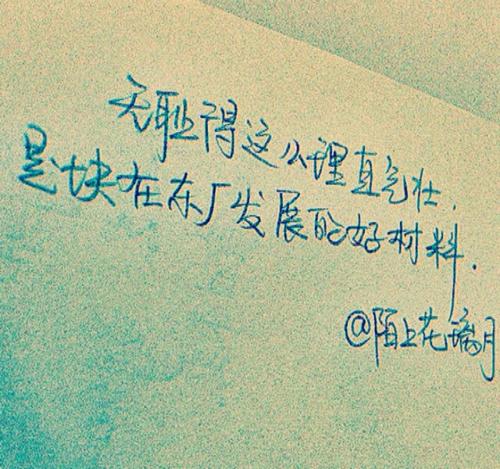 无耻得这么理直气壮.
是块在东厂发展的好材料.
@陌上花璃月